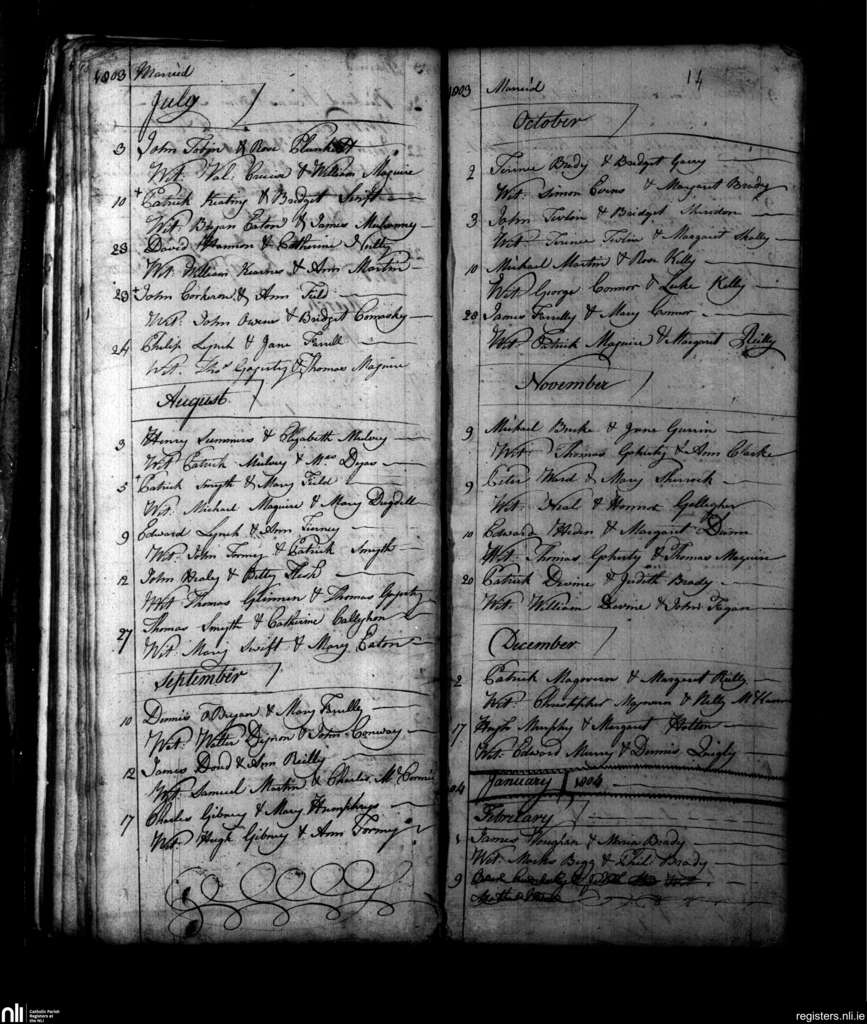 1803 Married
July
3 John Tobyn & Rose Plunkett
Wit. Val. & William Maguire
10 + Patrick Keating & Bridget Swift
Wit. Bryan Eaton & James Mulvanny
23 David Harmon & Catherine Nulty
Wit. William Kearns & Ann Martin
23 + John Corkeron & Ann Field
Wit. John Owens & Bridget Comasky
24 Philip Lynch & Jane Farrell
Wit. Thos Gogerty & Thomas Maguire
August
3 Henry Summers & Elizabeth Mulvey
Wit Patrick Mulvey & Mrs Dyas
5 + Patrick Smyth & Mary Field
Wit. Michael Maguire & Mary Dugdell
9 Edward Lynch & Ann Tierney
Wit. John Tormey & Patrick Smyth
12 John Healy & Betty Flesh
Wit Thomas Glennen & Thomas Gogerty
27 Thomas Smyth & Catherine Callyhon
Wit Mary Swift & Mary Eaton
September
10 Dennis oBryan & Mary Farrelly
Wit. Walter Dignon & John Conway
12 James Dowd & Ann Reilly
Wit Samuel Martin & Charles Mc Cormick
17 Charles Gibney & Mary Humphrys
Wit. Hugh Gibney & Ann Tormey
14
1803 Married
October
2 Terence Brady & Bridget Gerry
Wit. Simon Evers & Margaret Brady
3 John Tevlin & Bridget Sheridan
Wit Terence Tevlin & Margaret Skelly
10 Michael Martin & Rose Kelly
Wit George Connor & Luke Kelly
28 James Farrelly & Mary Connor
Wit Patrick Maguire & Margaret Reilly
November
9 Michael Burke & Jane Guirin
Wit Thomas Goherty & Ann Clarke
9 Peter Ward & Mary Sherrock
Wit. Neal & Honnor Gallagher
10 Edward Heden & Margaret Dunn
Wit. Thomas Goherty & Thomas Maguire
20 Patrick Devine & Judith Brady
Wit William Devine & John Fagan
December
2 Patrick Magoveran & Margaret Reilly
Wit Christopher & Nelly
17 Hugh Murphy & Margaret Hatton
Wit. Edward Murray & Dennis Quigly
04 January 1804
Febreiary
1 James Vaughan & Maria Brady
Wit. Marks Begg & Phil. Brady
9
nli Catholic Parish Registers at the NLI
registers.nli.ie